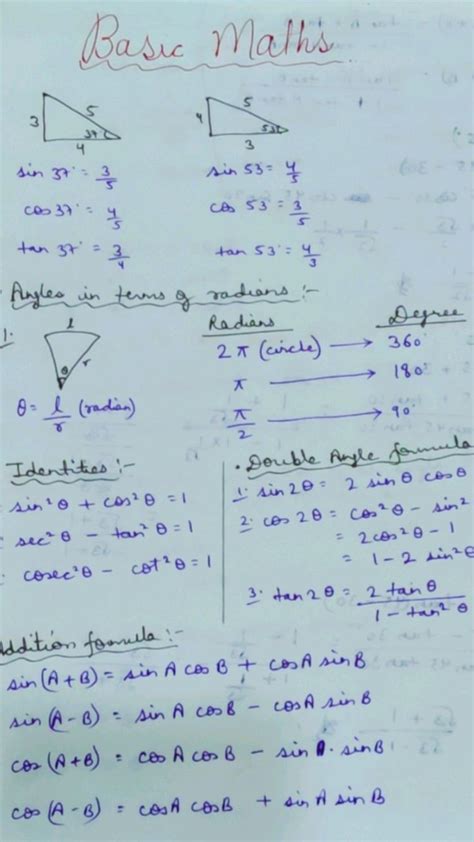 Basic Maths
3 5 37° 4
4 5 53° 3
sin 37° = 3/5
sin 53 = 4/5
cos 37° = 4/5
cos 53 = 3/5
tan 37° = 3/4
tan 53° = 4/3
Angles in terms of radians :-
1:
l
θ r
θ = l/r (radian)
Radians Degree
2π (circle) → 360°
π → 180°
π/2 → 90°
Identities :-
sin²θ + cos²θ = 1
sec²θ - tan²θ = 1
cosec²θ - cot²θ = 1
• Double Angle formula
1: sin 2θ = 2 sin θ cos θ
2: cos 2θ = cos²θ - sin²
= 2cos²θ - 1
= 1 - 2 sin²θ
3: tan 2θ = 2 tan θ / 1 - tan²θ
Addition formula :-
sin (A+B) = sin A cos B + cos A sin B
sin (A-B) = sin A cos B - cos A sin B
cos (A+B) = cos A cos B - sin A · sin B
cos (A-B) = cos A cos B + sin A sin B